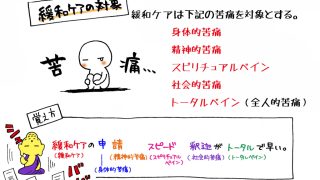 緩和ケアの対象
緩和ケアは下記の苦痛を対象とする。
身体的苦痛
精神的苦痛
スピリチュアルペイン
社会的苦痛
トータルペイン（全人的苦痛）
苦 痛...
覚え方
緩和ケアの申請 スピード 釈迦が トータルで早い。
(緩和ケア)
(精神的苦痛)
(スピリチュアルペイン)
(社会的苦痛)
(トータルペイン)
(身体的苦痛)